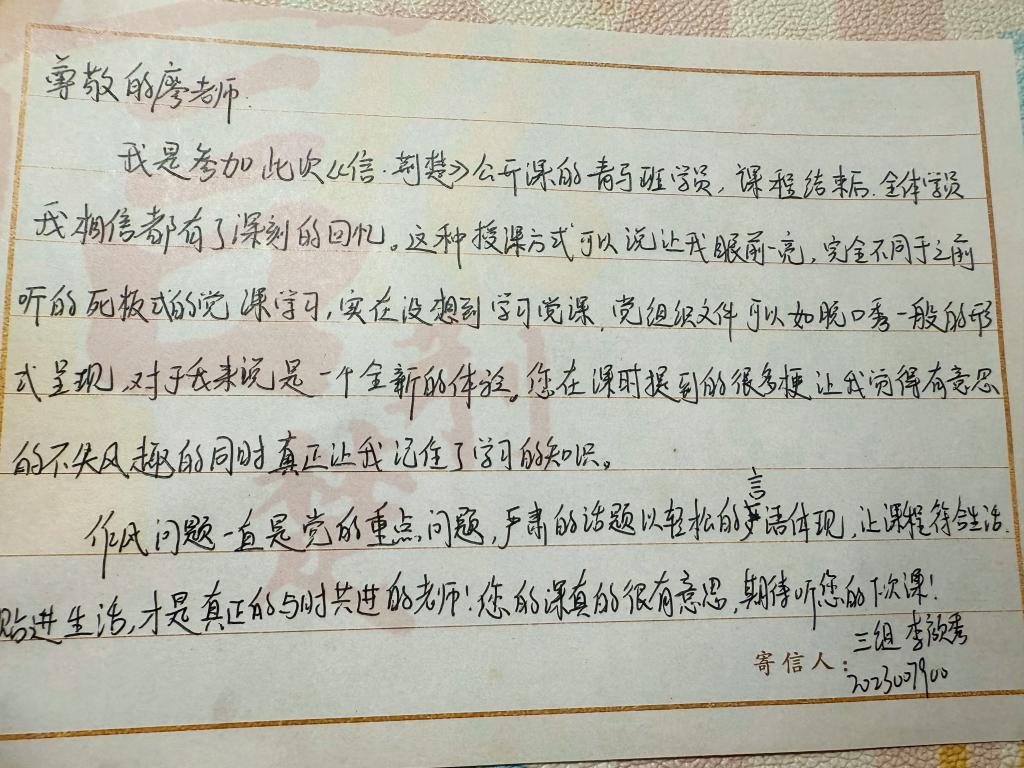 尊敬的廖老师.
我是参加此次《信·荆楚》公开课的青马班学员，课程结束后.全体学员
我相信都有了深刻的回忆。这种授课方式可以说让我眼前一亮，完全不同于之前
听的死板式的党课学习，实在没想到学习党课，党组织文件可以如脱口秀一般的形
式呈现，对于我来说是一个全新的体验。您在课时提到的很多梗让我觉得有意思
的不失风趣的同时真正让我记住了学习的知识。
作风问题一直是党的重点问题，严肃的话题以轻松的言语体现，让课程符合生活.
贴进生活，才是真正的与时共进的老师！您的课真的很有意思，期待听您的下次课！
寄信人：三组 李欣秀
2023007900
荆楚